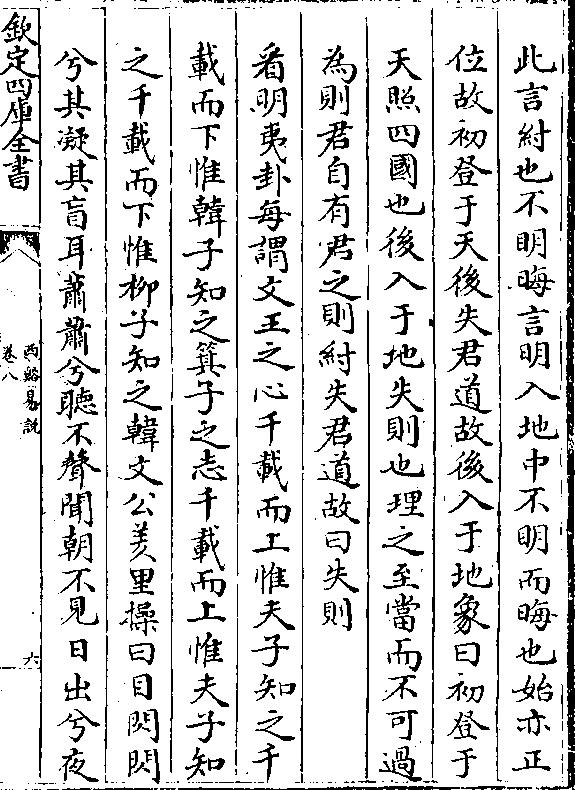 此言紂也不明晦言明入地中不明而晦也始亦正
位故初登于天後失君道故後入于地象曰初登于
天照四國也後入于地失則也理之至當而不可過
為則君自有君之則紂失君道故曰失則
看明夷卦每謂文王之心千載而上惟夫子知之千
載而下惟韓子知之箕子之志千載而上惟夫子知
之千載而下惟柳子知之韓文公羑里操曰目閃閃
兮其凝其盲耳蕭蕭兮聽不聲聞朝不見日出兮夜
欽定四庫全書
西谿易說
卷八
六